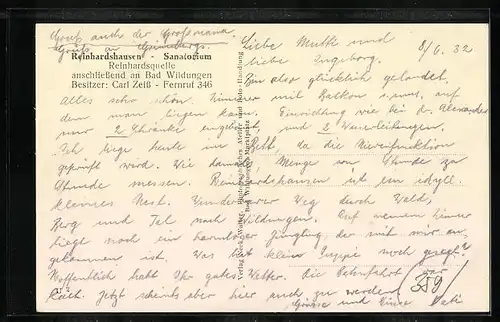 Gruß auch der Großmama.
Grüße an
Reinhardshausen - Sanatorium
Reinhardsquelle
anschließend an Bad Wildungen
Besitzer: Carl Zeiß - Fernruf 346
8/6. 32
Liebe Mutti und
liebe Ingeborg.
Bin also glücklich gelandet,
alles sehr schön. Zimmer mit Balkon etwas, auf
dem man liegen kann. Einrichtung wie bei Dr. Alexander
nur 2 Schränke eingebaut, und 2 Wasserleitungen.
Ich liege heute im Bett, da die Nierenfunktion
geprüft wird. Wie damals, Menge von Stunde zu
Stunde messen. Reinhardshausen ist ein idyll.
kleines Nest. Wunderbarer Weg durch Wald,
Berg und Tal nach Wildungen. Auf meinem Zimmer
liegt noch ein harmloser Jüngling, der mit mir an-
gekommen ist. Was hat kleine Puppe noch gesagt?
Hoffentlich habt Ihr gutes Wetter. Die Bahnfahrt war
kalt. Jetzt scheints aber hier auch zu werden
Grüsse und Küsse Vati
559
Bad Wildungen